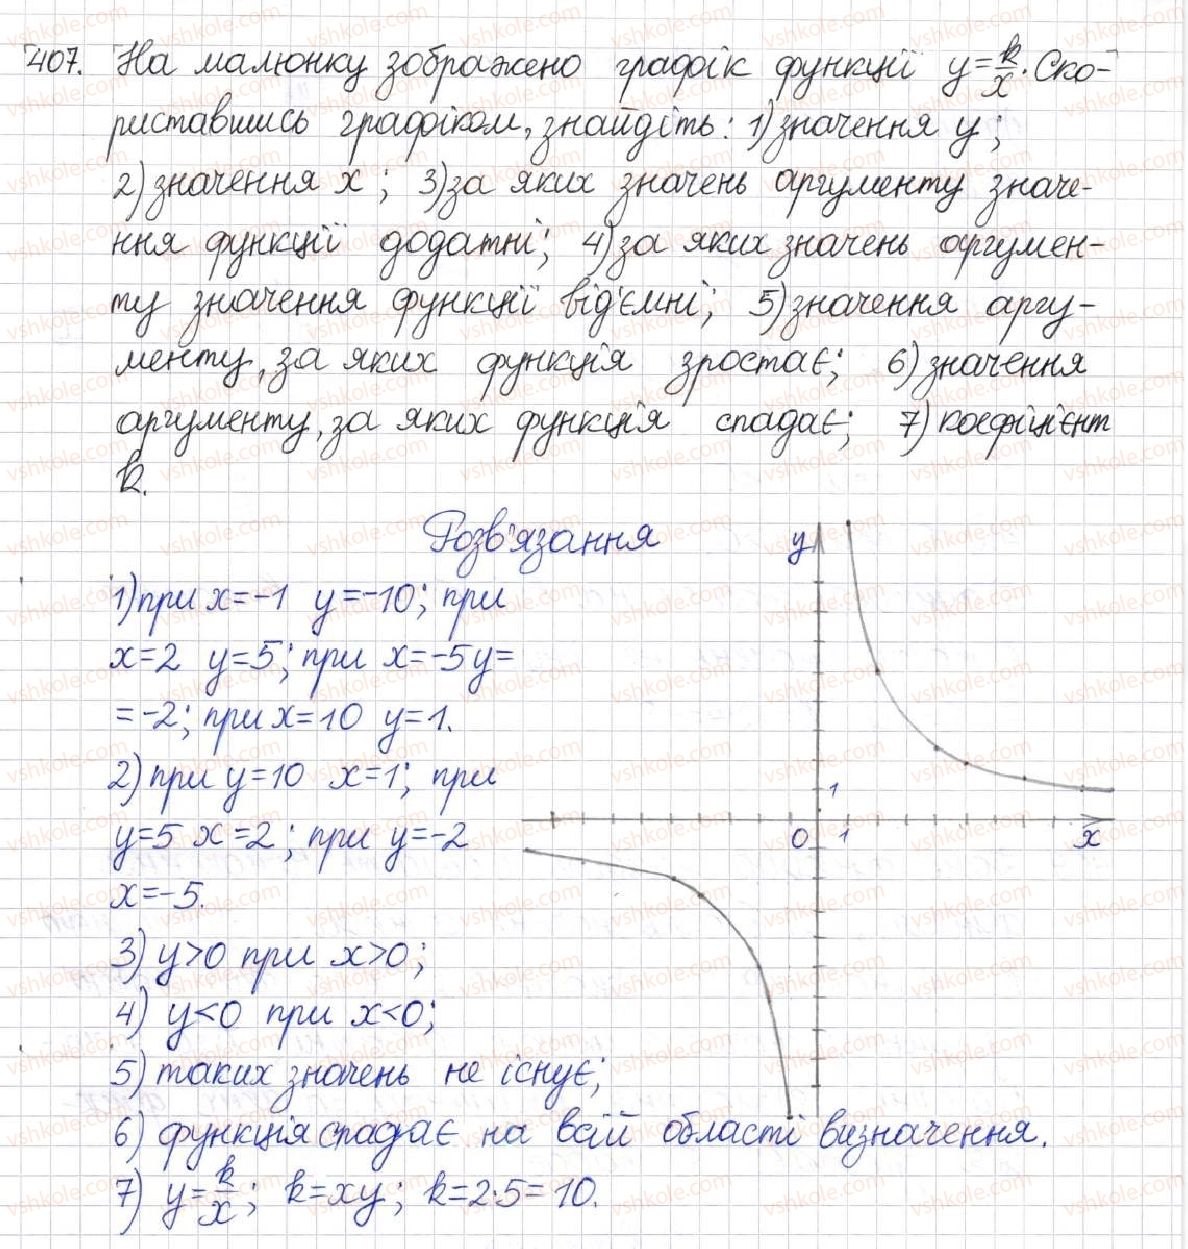 407. На малюнку зображено графік функції y=k/x. Ско-
риставшись графіком, знайдіть: 1) значення y;
2) значення x; 3) за яких значень аргументу значе-
ння функції додатні; 4) за яких значень аргумен-
ту значення функції від'ємні; 5) значення аргу-
менту, за яких функція зростає; 6) значення
аргументу, за яких функція спадає; 7) коефіцієнт
k.
Розв'язання
1) при x=-1 y=-10; при
x=2 y=5; при x=-5 y=
=-2; при x=10 y=1.
2) при y=10 x=1; при
y=5 x=2; при y=-2
x=-5.
3) y>0 при x>0;
4) y<0 при x<0;
5) таких значень не існує;
6) функція спадає на всій області визначення.
7) y=k/x; k=xy; k=2·5=10.
y
1
0 1 x
vshkole.com